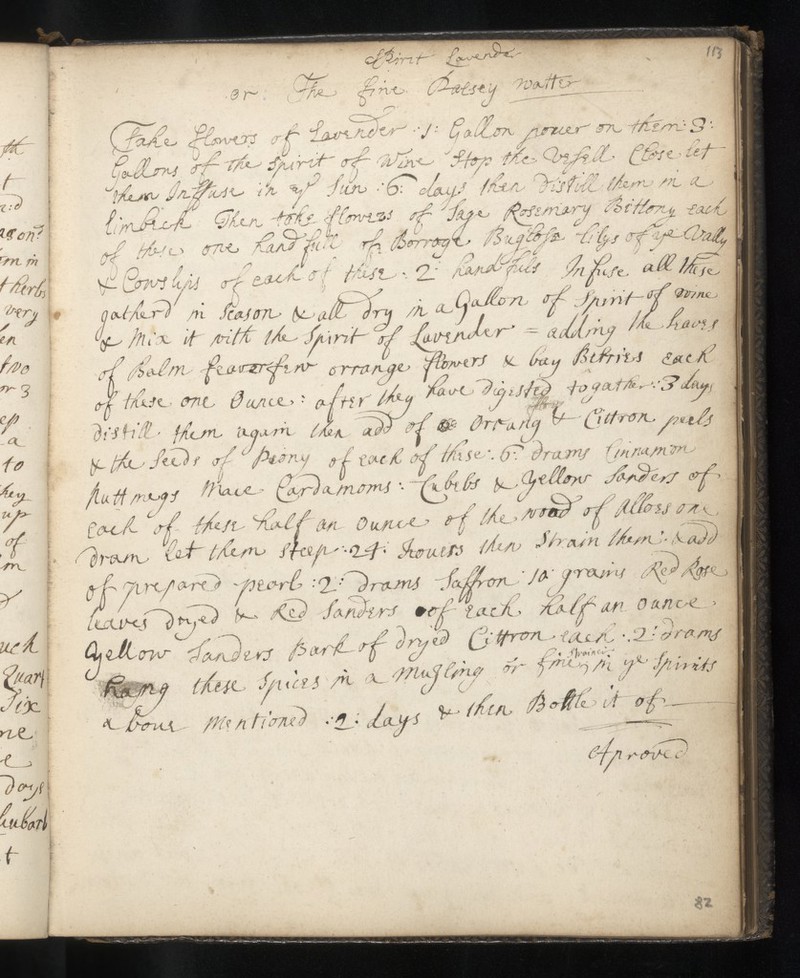 113
Spirit Lavender
or The fine Palsey watter
Take flowers of Lavender :1: Gallon power on them :3:
Gallons of the Spirit of Wine Stop the Vesell Close let
them Infuse in ye Sun :6: days then Distill them in a
limbeck Then take flowers of Sage Rosemary Bettony each
of these one hand full of Borroge Buglose lilys of ye Vally
& Cowslips of each of these :2: handfuls Infuse all these
gatherd in Season & all dry in a Gallon of Spirit of wine
& Mix it with the Spirit of Lavender = adding the leaves
of Balm feaverfew orrange flowers & bay Berries each
of these one Ounce : after they have digested togather :3 days
distill them again then add of Orrang & Cittron peels
& the Seeds of Peony of each of these :6: drams Cinnamon
Nuttmegs Mace Cardamoms : Cubebs & yellow Sanders of
each of these half an ounce of the wood of Alloes one
dram let them steep :24: houers then Strain them : & add
of prepared pearl :2: drams Saffron 10 grains Red Rose
leaves dryed & Red Sanders of each half an ounce
yellow Sanders Bark of dryed Cittron each :2: drams
hang these Spices in a Muzling or fine strainer in ye Spirits
above Mentioned :2: days & then Bottle it of
Aproved
82
th
t
very
en
two
or 3
ep
a
to
they
up
of
m
uch
Quart
Six
ne
e
days
t